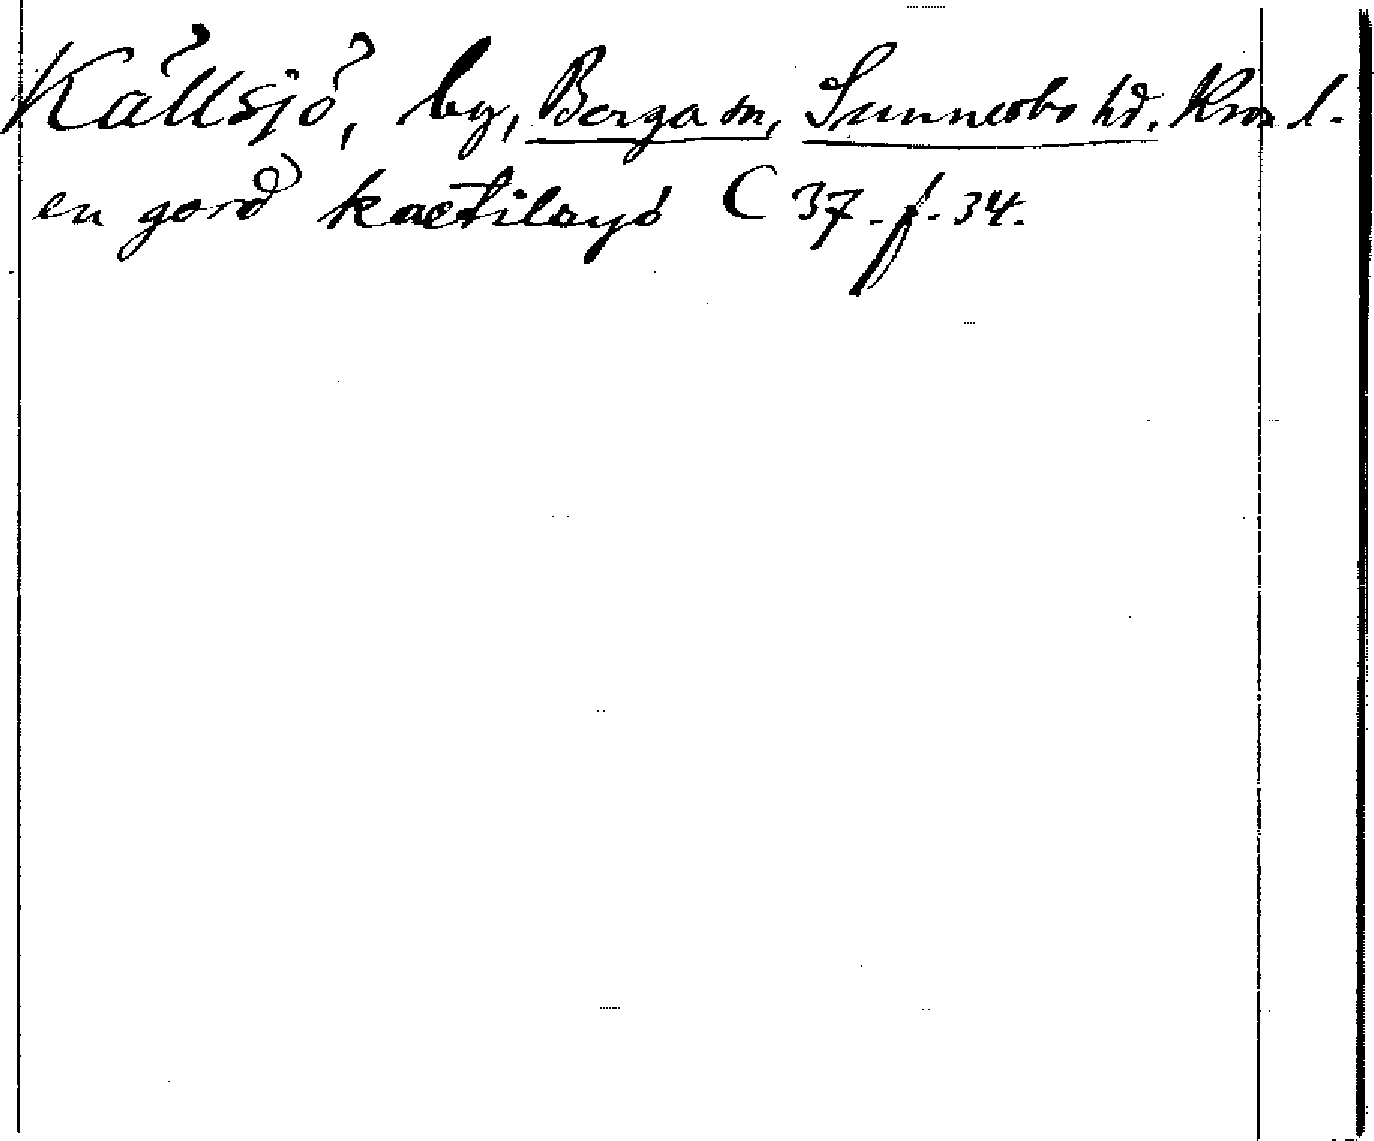 Källsjö, by, Berga sn, Sunnerbo hd. Kron. l.
en gord kaetilsyö C 37. f. 34.